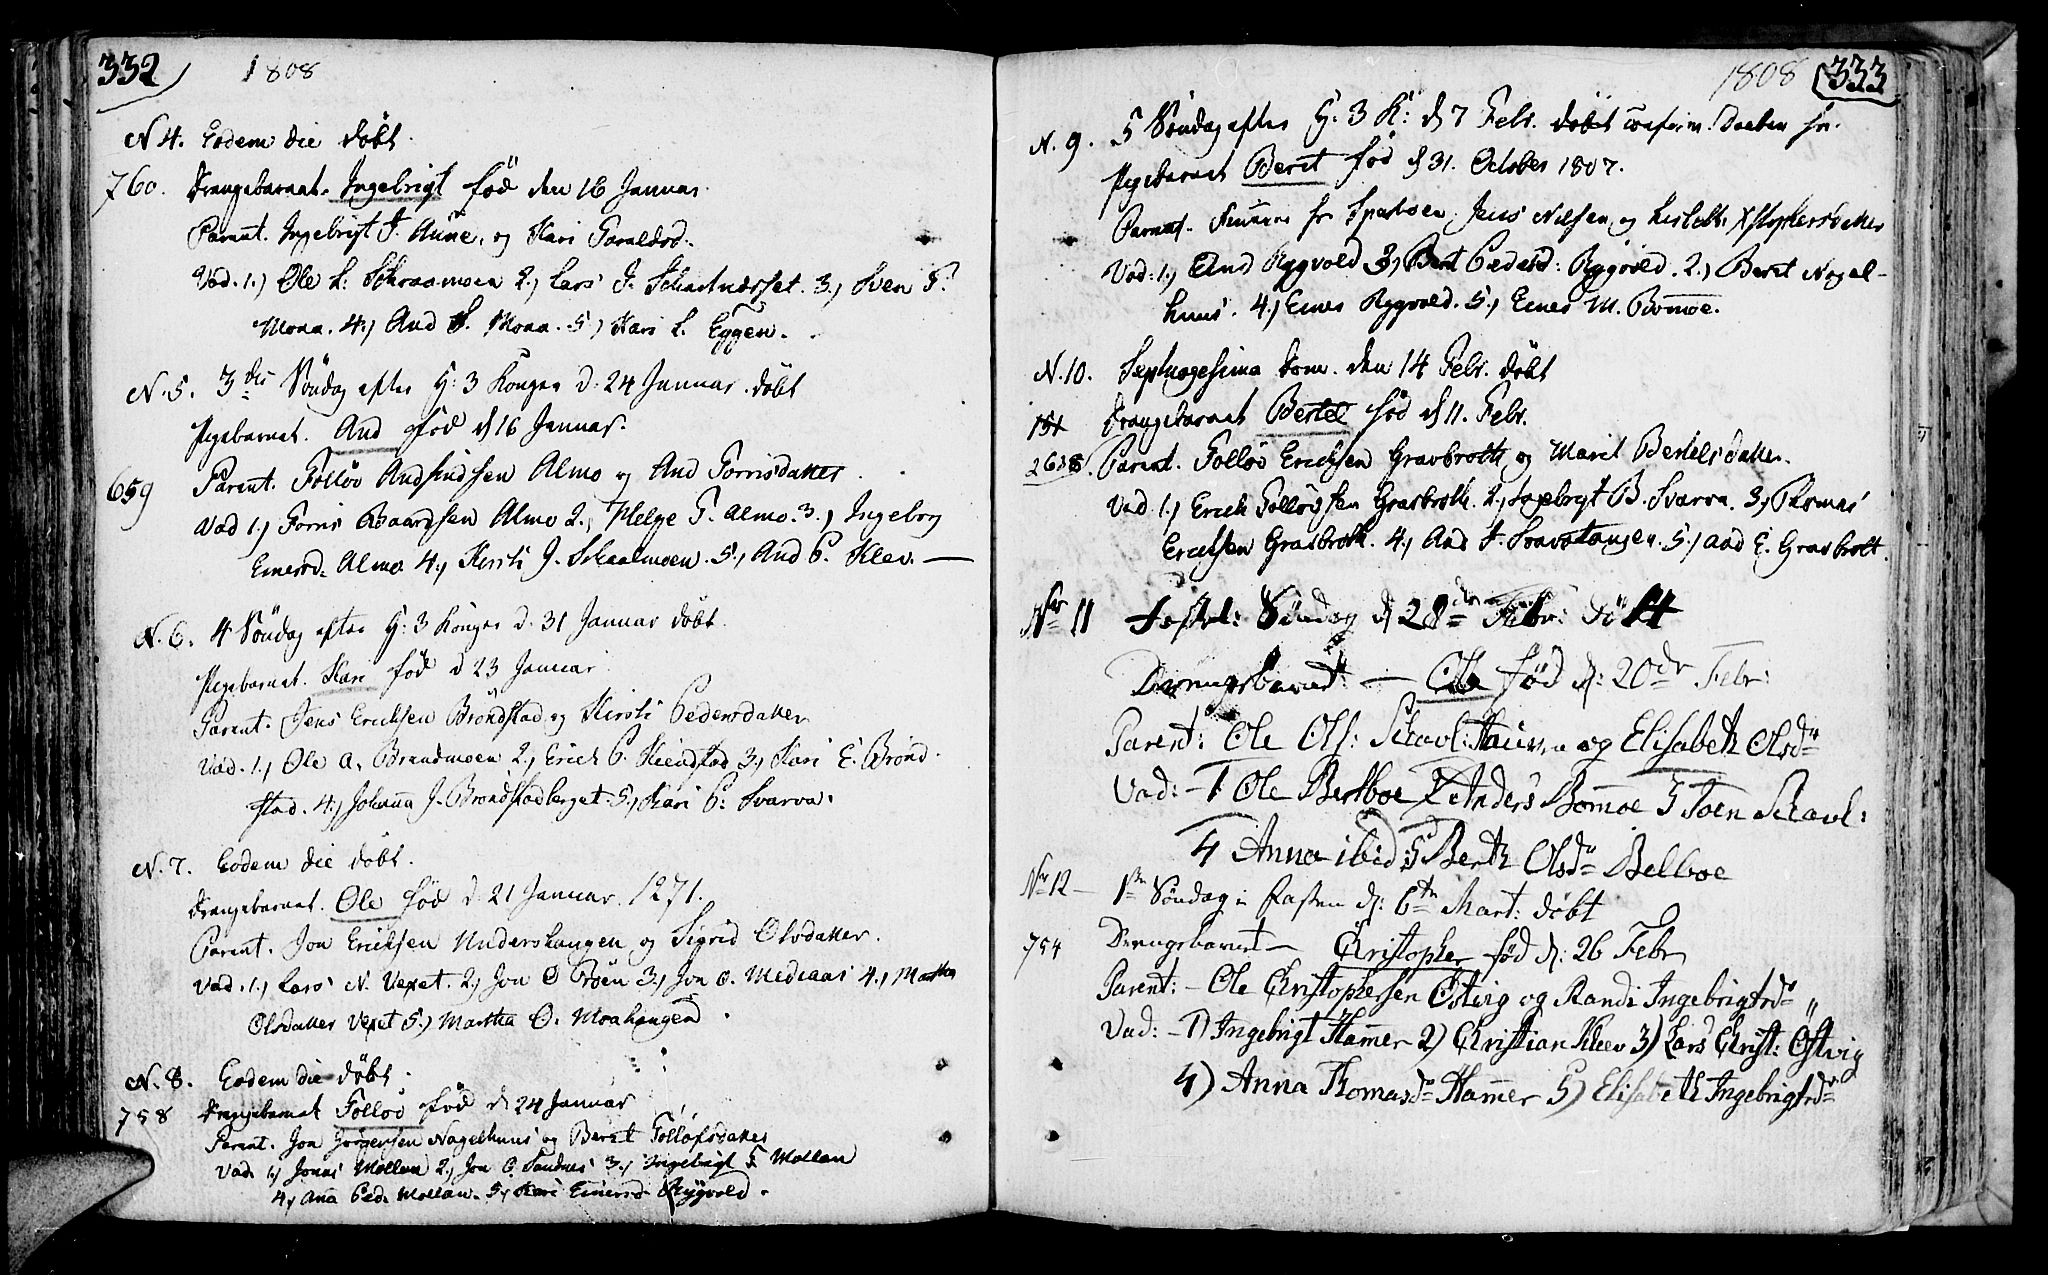 332 1808
N 4. Eodem die döbt.
760. Drengebarnet. Ingebrigt föd den 16 Januar.
Parent. Ingebrigt J. Aune, og Kari Haraldsd.
Vad. 1.) Ole L: Schraamoen 2.) Lars J. 3.) Sven
Moaa. 4.) And Moaa. 5.) Kari L. Eggen.
N. 5. 3die Söndag efter H: 3 Konger d: 24 Januar. döbt
Pigebarnet. And föd d 16 Januar.
659 Parent. Follöv Andfindsen Almo og And Torrisdatter
Vad 1.) Torris Baardsen Almo 2.) Helge T. Almo. 3.) Ingeborg
Einersd. Almo. 4.) Kirsti J. Schaalmoen. 5.) And P. Klev.
N. 6. 4 Söndag efter H: 3 Konger d. 31 Januar döbt.
Pigebarnet. Kari föd d 23 Januar
Parent. Jens Ericksen Bröndstad og Kirsti Pedersdatter
Vad. 1.) Ole A. Brandmoen 2.) Erich P. 3.) Kari E. Brönd-
stad. 4.) Johanna J. Bröndstadberget. 5.) Kari P: Svarva.
N. 7. Eodem die döbt.
Drengebarnet. Ole föd d. 21 Januar. 1271.
Parent. Jon Ericksen Undershaugen og Sigrid Olsdatter.
Vad. 1.) Lars N. Vexet. 2.) Jon O Tröen 3.) Jon O. Mediaas 4.) Martha
Olsdatter Vexet 5.) Martha O. Moahaugen.
N. 8. Eodem die döbt.
758 Drengebarnet Follöv föd d 24 Januar
Parent. Jon Jörgensen Nagelhuus og Beret Tollöfsdatter
Vad. 1.) Jonas Mollan 2.) Jon O. Sandnes 3.) Ingebrigt Mollan
4.) Ana Ped. Mollan. 5.) Kari Einersd Rygvold.
1808 333
N. 9. 5 Söndag efter H: 3 K: d 7 Febr. döbt confirm. Daaben
Pigebarnet Beret föd d 31. October 1807.
Parent. Sparboen, Jens Nilsen, og Xstophersdatter
Vad: 1.) And Rygvold 3.) Beret Pedersd: Rygvold. 2.) Beret Nagel-
huus. 4.) Einer Rygvold. 5.) Einer M. Bomoe.
N. 10. Septuagesima Dom. den 14 Febr. döbt
151 Drengebarnet Bertel föd d 11. Febr.
2638. Parent. Follöv Ericksen Gravbrodt og Marit Bertelsdatter.
Vad 1.) Erich Follövsen Gravbrodt. 2.) Ingebrigt B. Svarva. 3.) Thomas
Ericksen Gravbrodt. 4.) And J. Snavstangen. 5.) And E. Gravbrodt.
Nr 11 Söndag d 28de Febr: döbt
Drengebarnet: — Ole föd d: 20de Febr:
Parent: Ole Ols: og Elisabeth Olsdr
Vad: — 1 Ole Belboe 2 Anders Bomoe 3 Toen Skavl:
4 Anna ibid 5 Berth Olsdr Belboe
Nr 12 — 1ste Söndag i Fasten d: 6te Mart: döbt
754 Drengebarnet — Christopher föd d: 26 Febr
Parent: — Ole Christophersen Östvig og Randi Ingebrigtsdr
Vad: — 1) Ingebrigt Hammer 2) Christian Kleev 3) Lars Christ: Östvig
4) Anna Thomasdr Hammer 5) Elisabeth Ingebrigtsdr